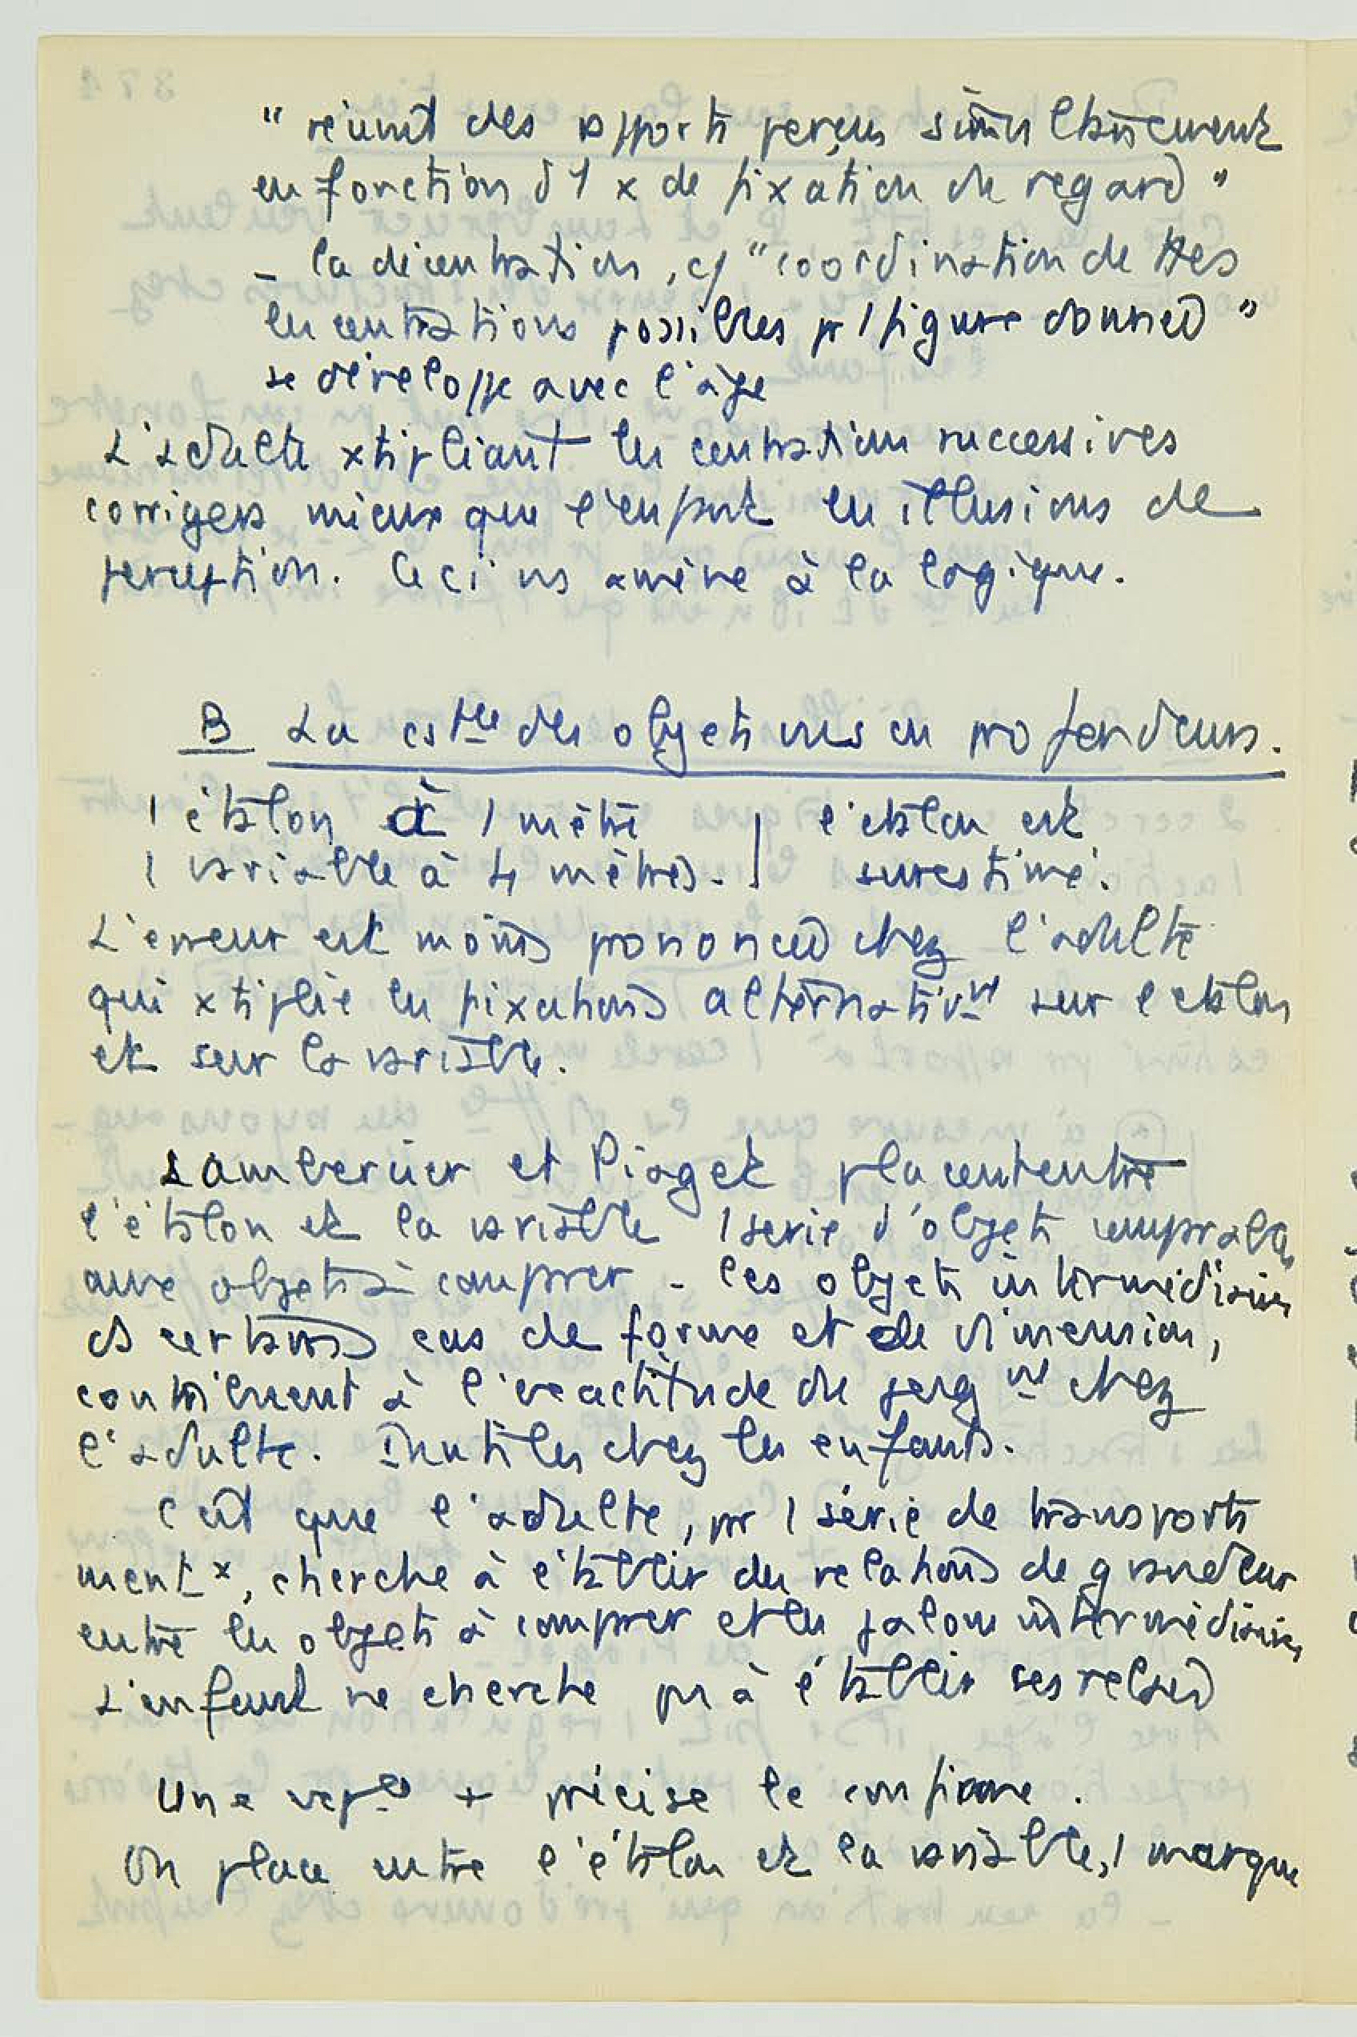 " réunit des rapports perçus simultanément
en fonction d'1 x de fixation du regard "
_ la décentration, cf "coordination de ttes
les centrations possibles pr 1 figure donnée "
se développe avec l'âge
L'adulte xtipliant les centrations successives
corrigera mieux que l'enfant les illusions de
perception. Ceci ns amène à la logique.
B La cstce des objets vus en profondeurs.
1 étalon à 1 mètre | l'étalon est
1 variable à 4 mètres. | surestimé.
L'erreur est moins prononcée chez l'adulte
qui xtiplie les fixations alternativt sur l'étalon
et sur la variable.
Lambercier et Piaget placent entre
l'étalon et la variable 1 série d'objets comparables
aux objets à comparer - les objets intermédiaires
ds certains cas de forme et de dimension,
contribuent à l'exactitude du jugt chez
l'adulte. Inutiles chez les enfants.
C'est que l'adulte, par 1 série de transports
mentx, cherche à établir des relations de grandeur
entre les objets à comparer et les jalons intermédiaires,
L'enfant ne cherche pas à établir ses relations
Une + précise le confirme.
On place entre l'étalon et la variable, 1 marque